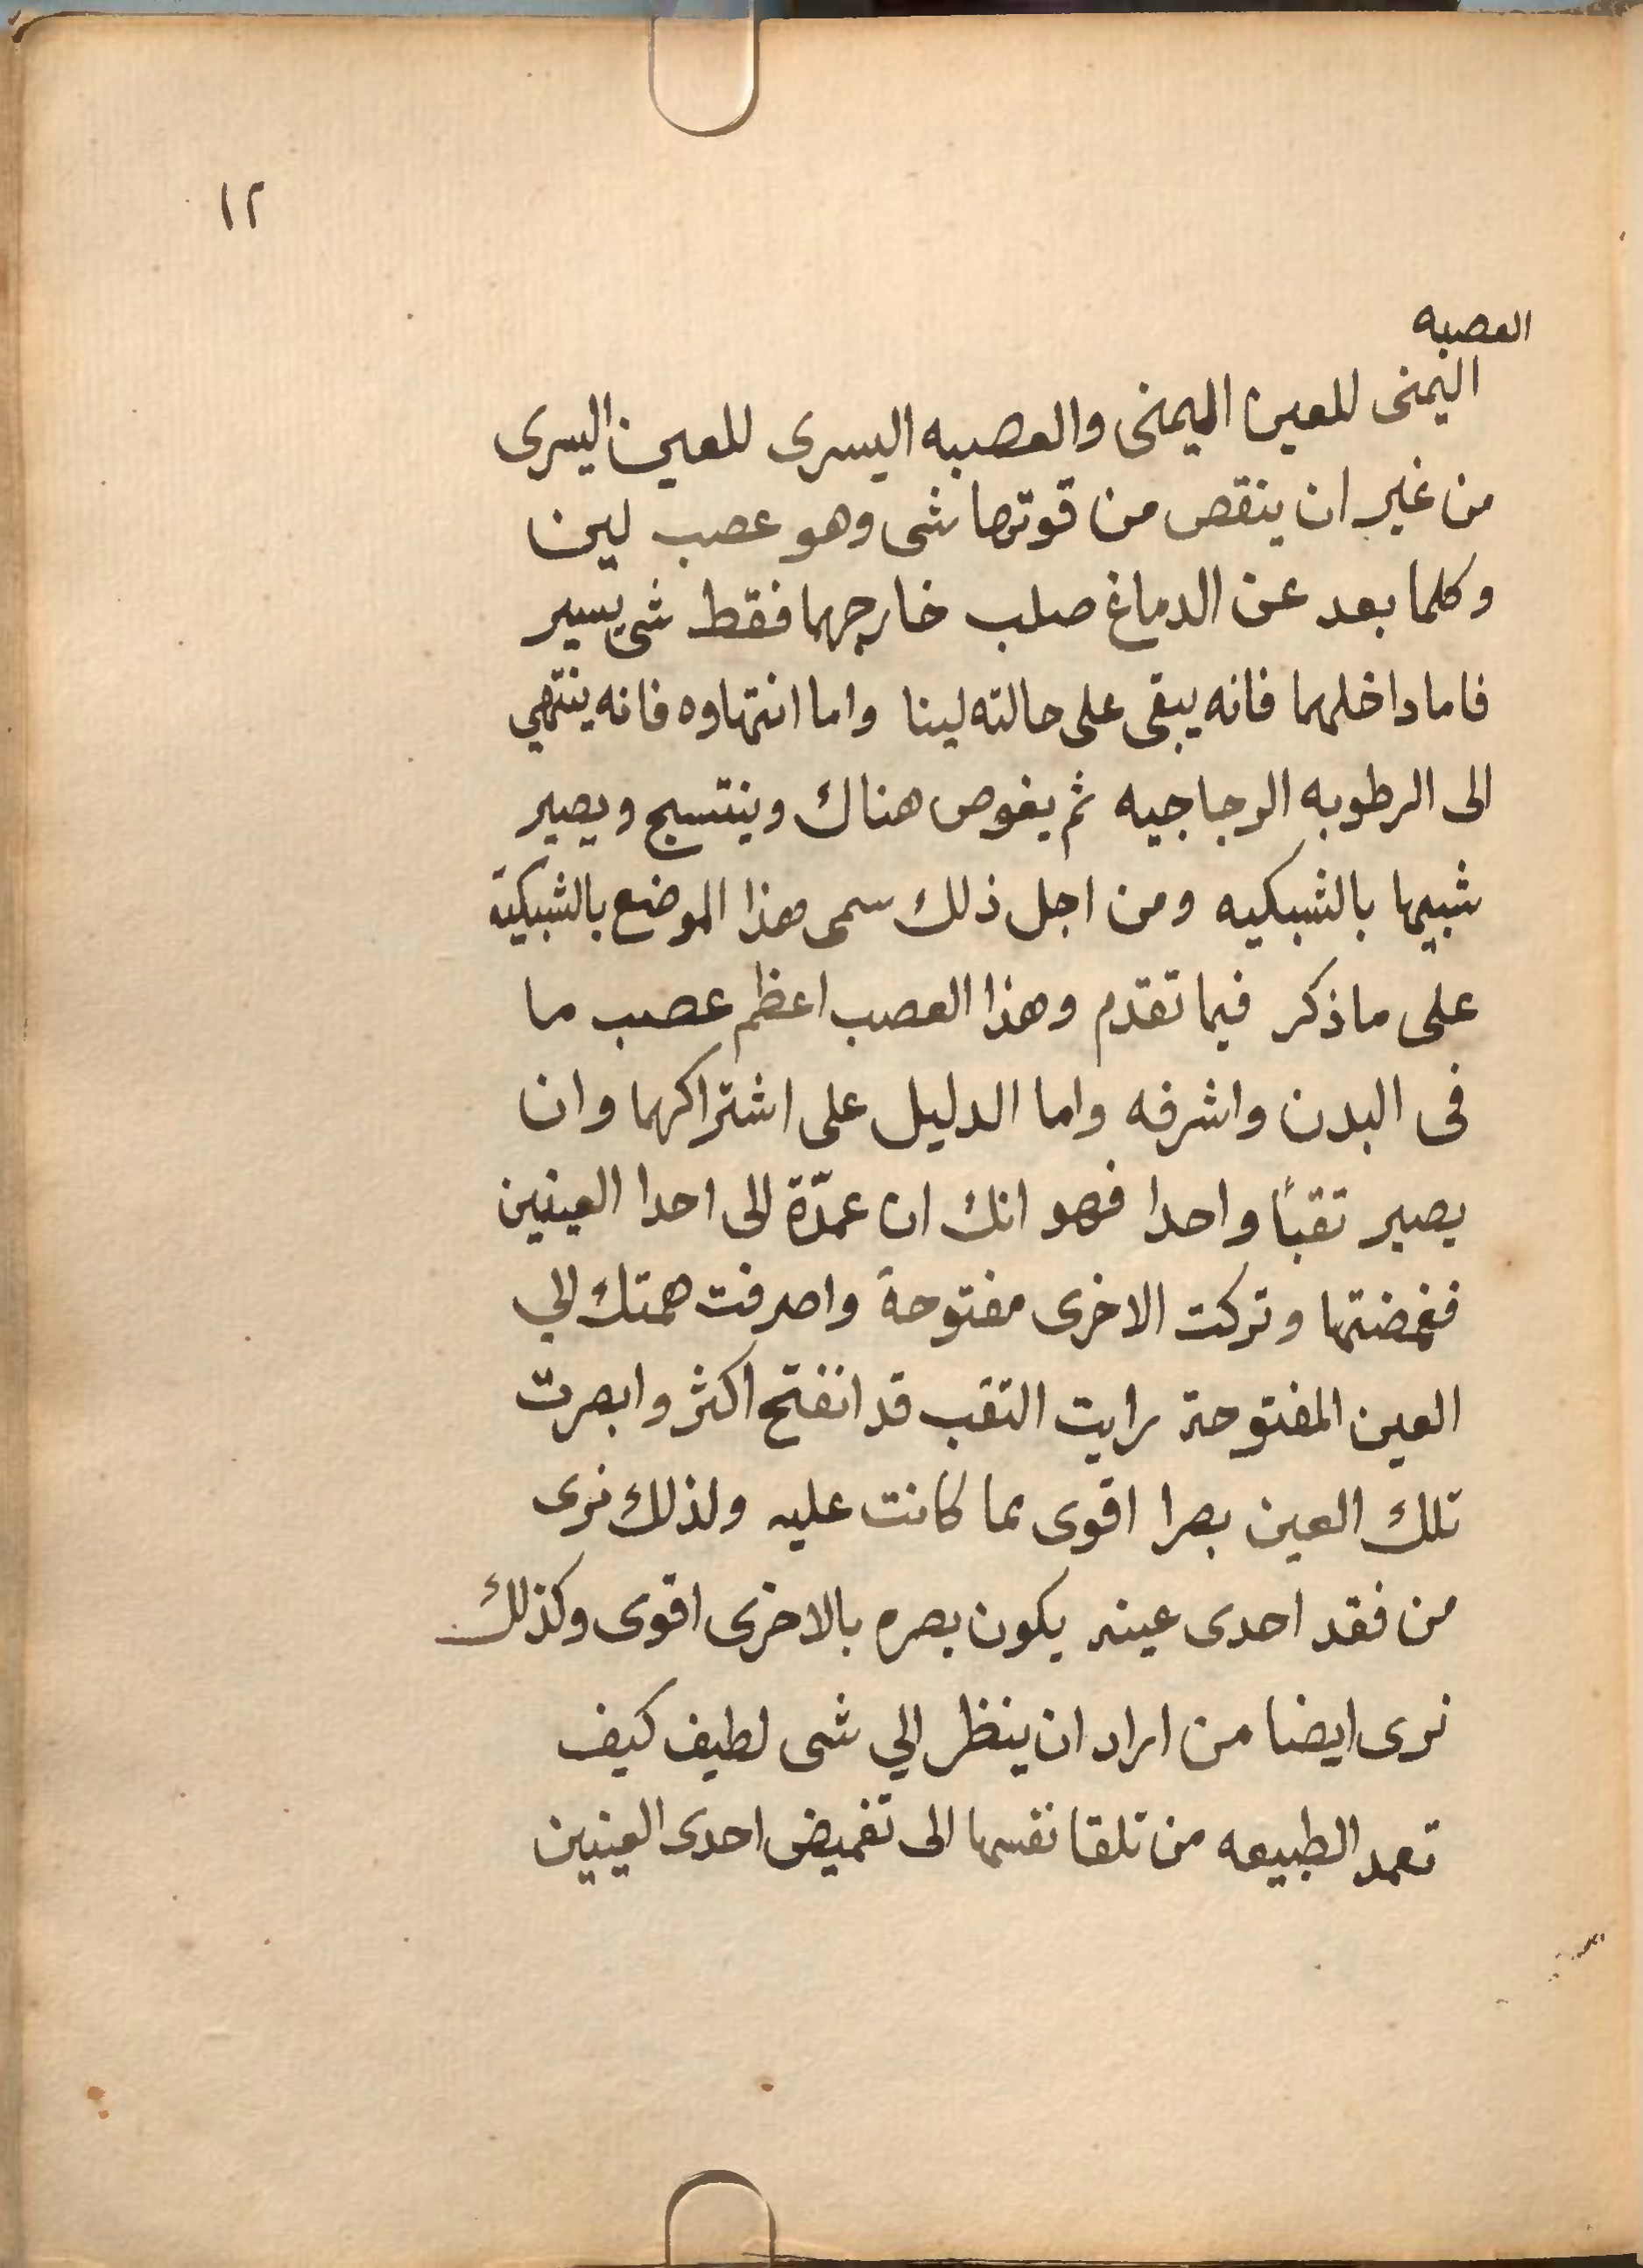 ١٢
العصبه
اليمنى للعين اليمنى والعصبه اليسرى للعين اليسرى
من غير ان ينقص من قوتها شى وهو عصب لين
وكلما بعد عن الدماغ صلب خارجهما فقط شى يسير
فاما داخلهما فانه يبقى على حالته لينا واما انتهاوه فانه ينتهي
الى الرطوبه الزجاجيه ثم يغوص هناك وينتسج ويصير
شبيها بالشبكيه ومن اجل ذلك سمى هذا الموضع بالشبكية
على ما ذكر فيما تقدم وهذا العصب اعظم عصب ما
فى البدن واشرفه واما الدليل على اشتراكهما وان
يصير تقبًا واحدا فهو انك ان عمدّة الى احدا العينين
فغمضتها وتركت الاخرى مفتوحة واصرفت همتك الي
العين المفتوحة رايت التقب قد انفتح اكثر وابصرت
تلك العين بصرا اقوى مما كانت عليه ولذلك نرى
من فقد احدى عينه يكون بصره بالاخرى اقوى وكذلك
نرى ايضا من اراد ان ينظر الي شى لطيف كيف
تعمد الطبيعه من تلقا نفسها الى تغميض احدى العينين